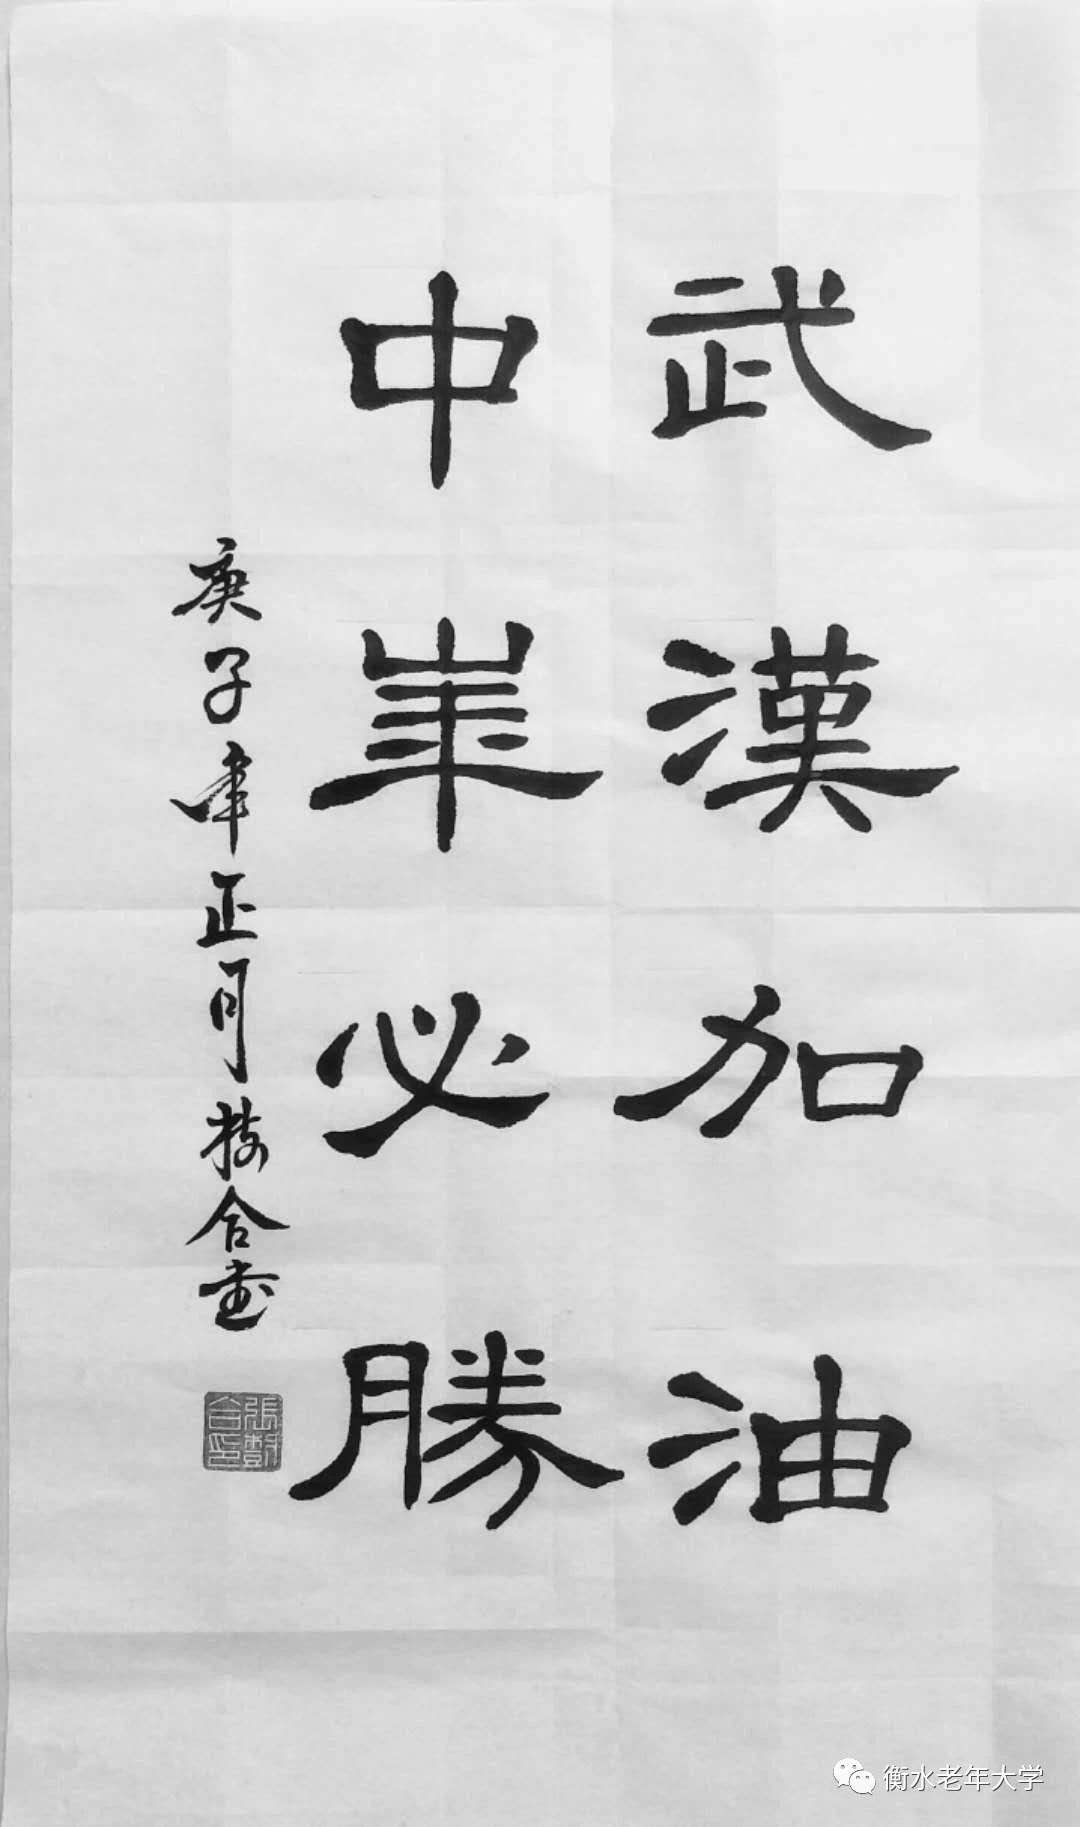 武漢加油
中華必勝
庚子年正月樹合書
張樹合印
衡水老年大学